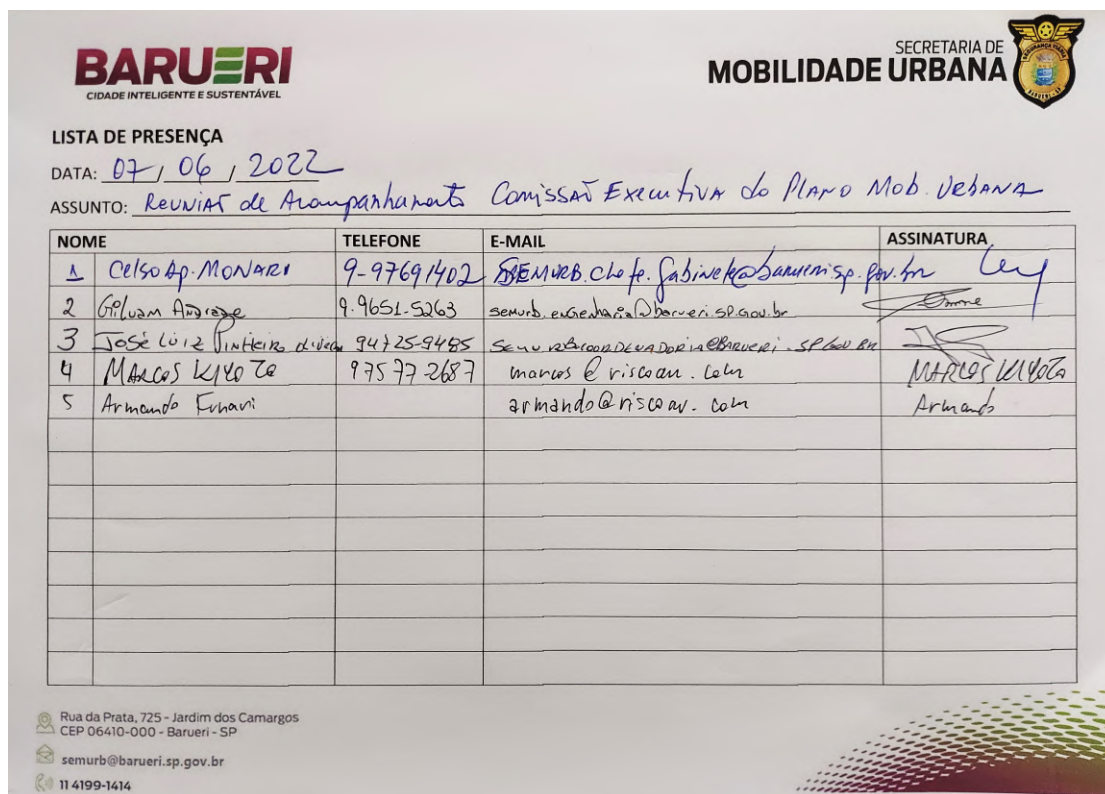 BARUERI
CIDADE INTELIGENTE E SUSTENTÁVEL
SECRETARIA DE
MOBILIDADE URBANA
LISTA DE PRESENÇA
DATA: 07 / 06 / 2022
ASSUNTO: Reunião de Acompanhamento Comissão Executiva do Plano Mob. Urbana
NOME TELEFONE E-MAIL ASSINATURA
1 Celso Ap. MONARI 9-97691402 SEMURB.chefe.gabinete@barueri.sp.gov.br
2 Gilvam Andrade 9.9651-5263 semurb.engenharia@barueri.SP.Gov.br
3 José Luiz Pinheiro 94725-9485
4 MARCOS KIYOTO 97577-2687 marcos@riscoau.com MARCOS KIYOTO
5 Armando armando@riscoau.com Armando
Rua da Prata, 725 - Jardim dos Camargos
CEP 06410-000 - Barueri - SP
semurb@barueri.sp.gov.br
11 4199-1414